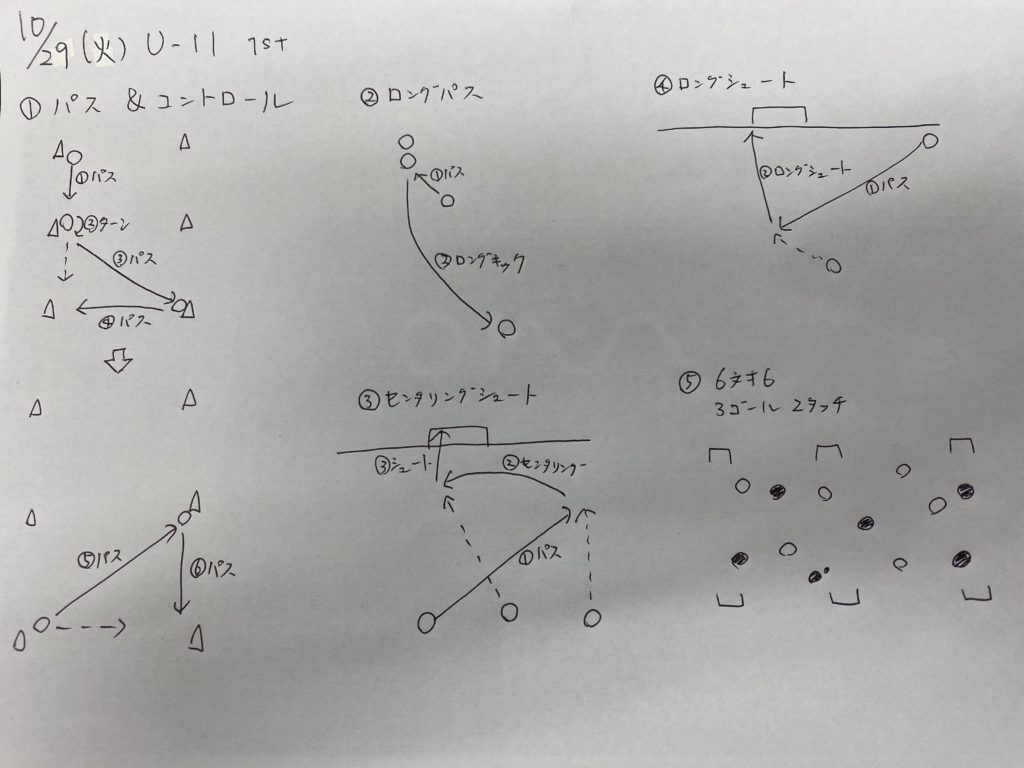 10/29(火) U-11 1st
① パス & コントロール
①パス
②ターン
③パス
④パス
⑤パス
⑥パス
② ロングパス
①パス
②ロングキック
③ センタリングシュート
③シュート
②センタリング
①パス
④ ロングシュート
②ロングシュート
①パス
⑤ 6対6
3ゴール 2タッチ